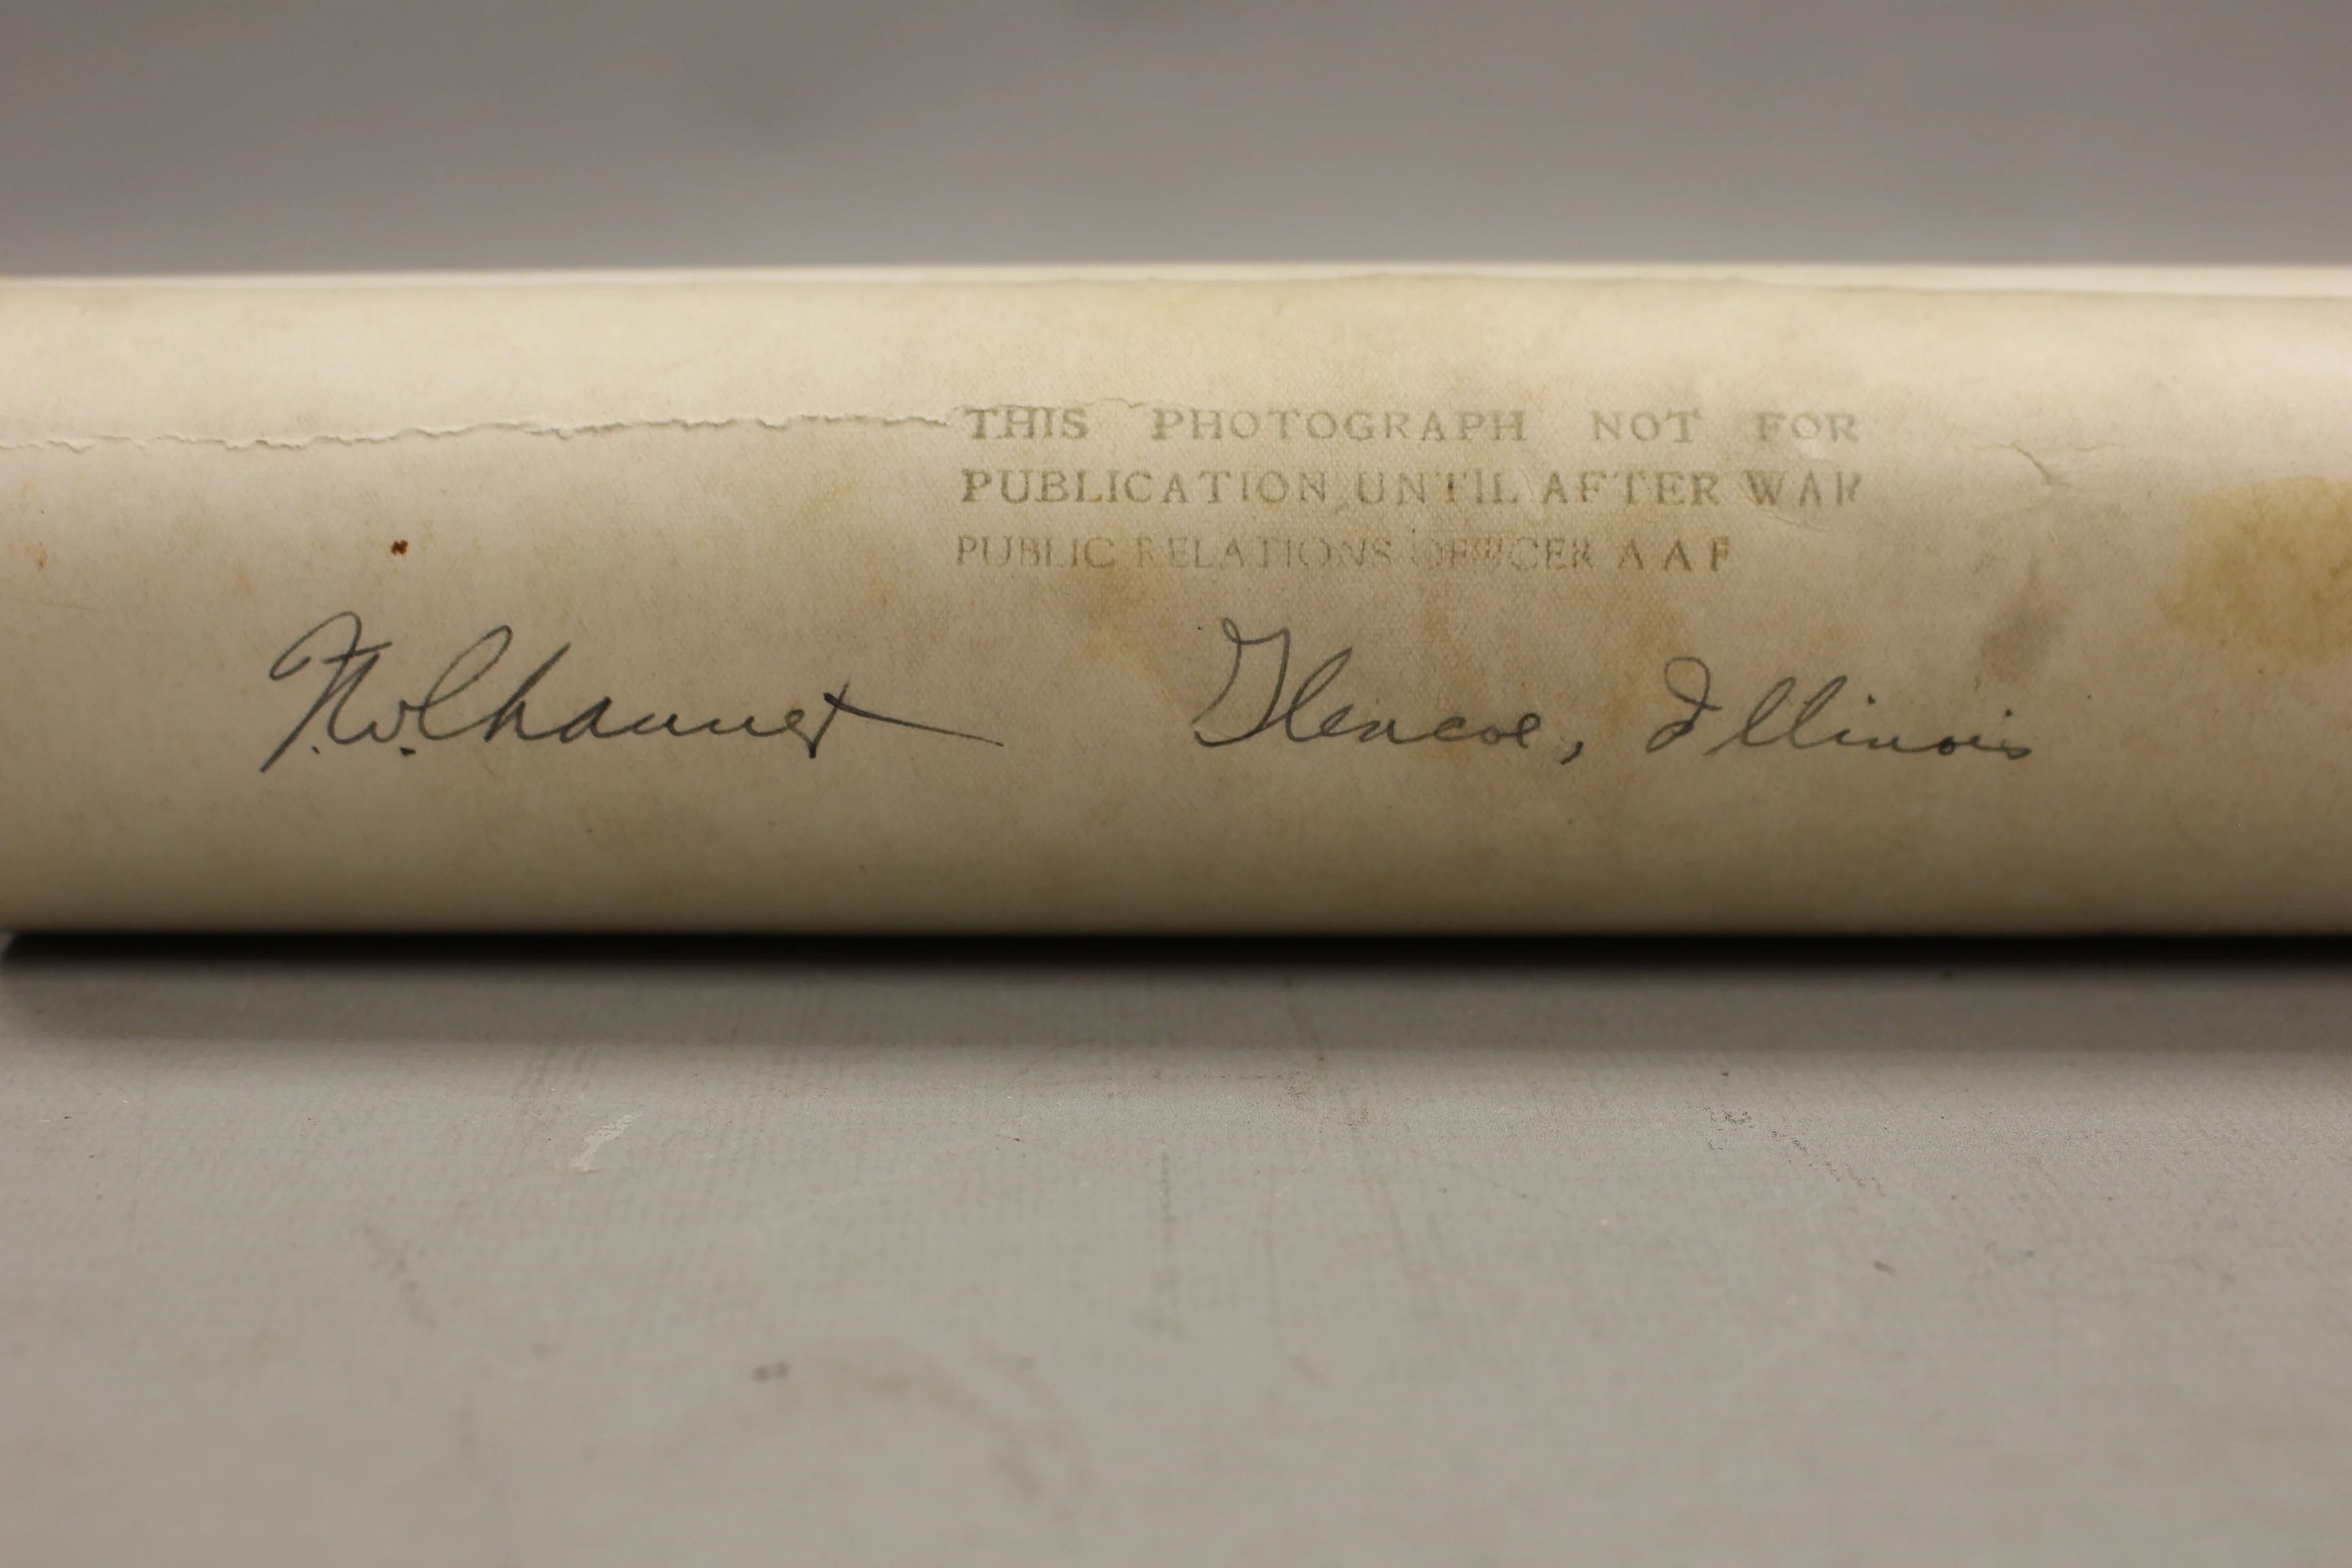 THIS PHOTOGRAPH NOT FOR
PUBLICATION UNTIL AFTER WAR
PUBLIC RELATIONS OFFICER A A F
Glencoe, Illinois